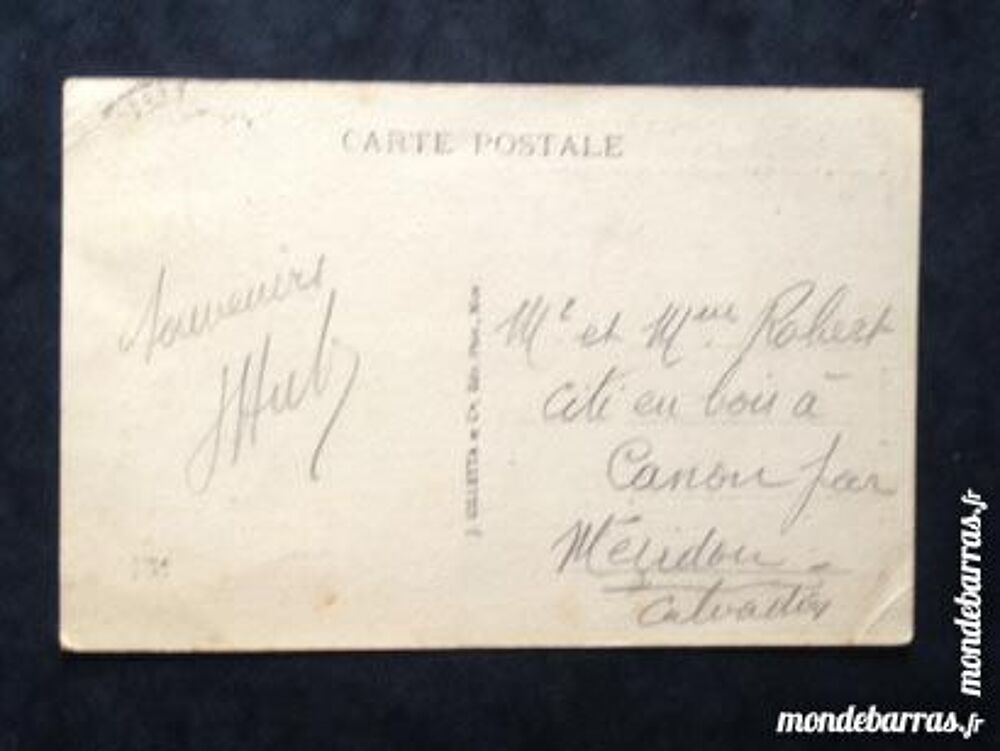 CARTE POSTALE
Souvenirs
J. GILLETTA & Cie, Edit.-Phot., Nice
Mr et Mme Robert
Cité en bois à
Canon par
Mézidon
Calvados
mondebarras.fr
mondebarras.fr